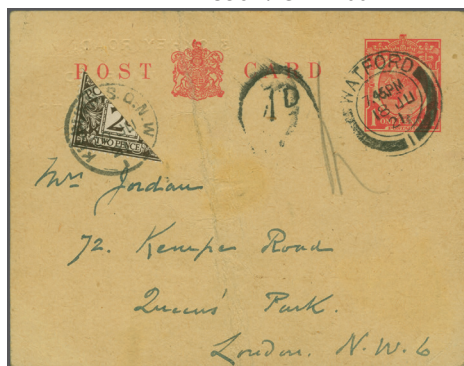 POST CARD
WATFORD
1D
S.O.N.W
2
TWO PENCE
Mrs Jordan
72. Kempe Road
Queens' Park.
London. N.W.6